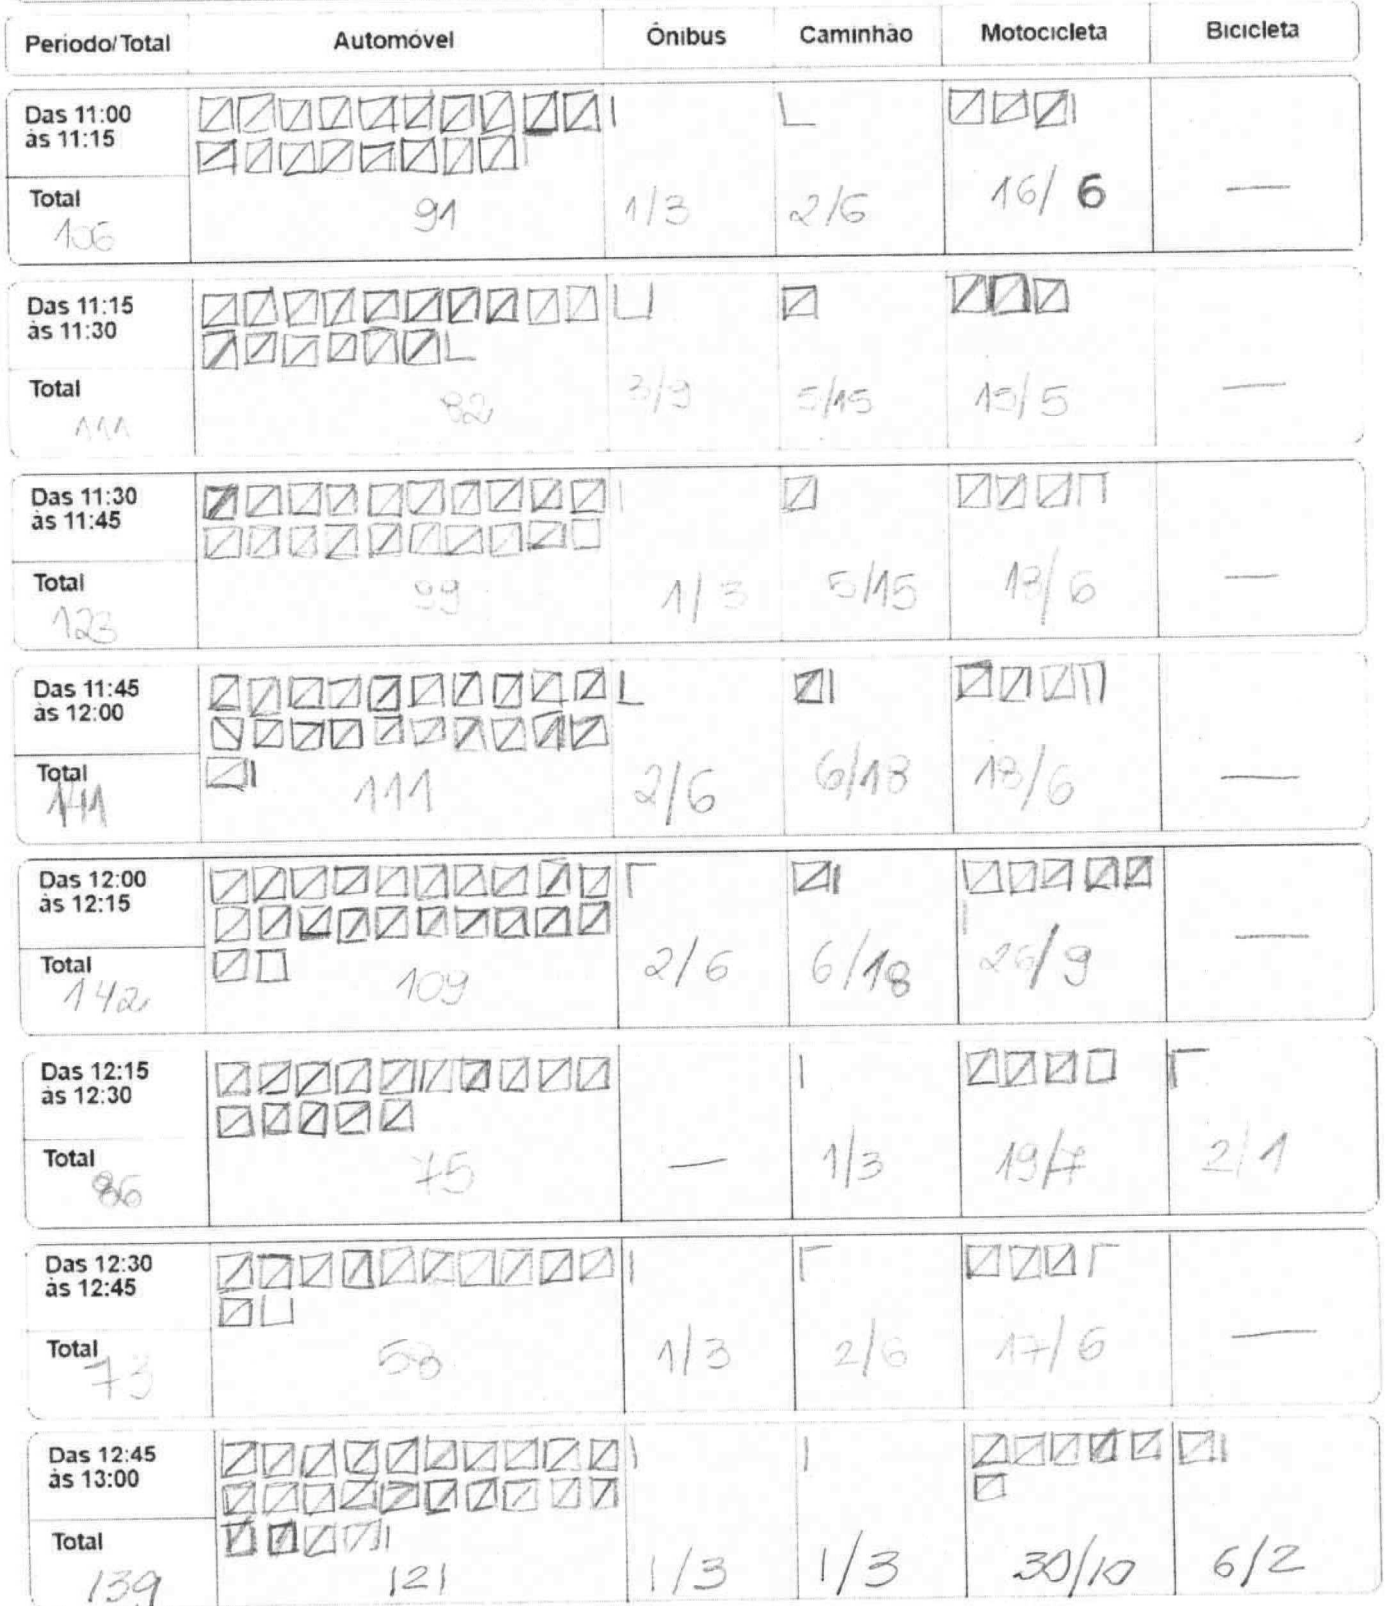 Período/Total Automóvel Ônibus Caminhão Motocicleta Bicicleta
Das 11:00
às 11:15
Total
106 91 1/3 2/6 16/6 —
Das 11:15
às 11:30
Total
111 82 3/9 5/15 15/5 —
Das 11:30
às 11:45
Total
123 99 1/3 5/15 18/6 —
Das 11:45
às 12:00
Total
141 111 2/6 6/18 18/6 —
Das 12:00
às 12:15
Total
142 109 2/6 6/18 26/9 —
Das 12:15
às 12:30
Total
86 75 — 1/3 19/7 2/1
Das 12:30
às 12:45
Total
73 58 1/3 2/6 17/6 —
Das 12:45
às 13:00
Total
139 121 1/3 1/3 30/10 6/2